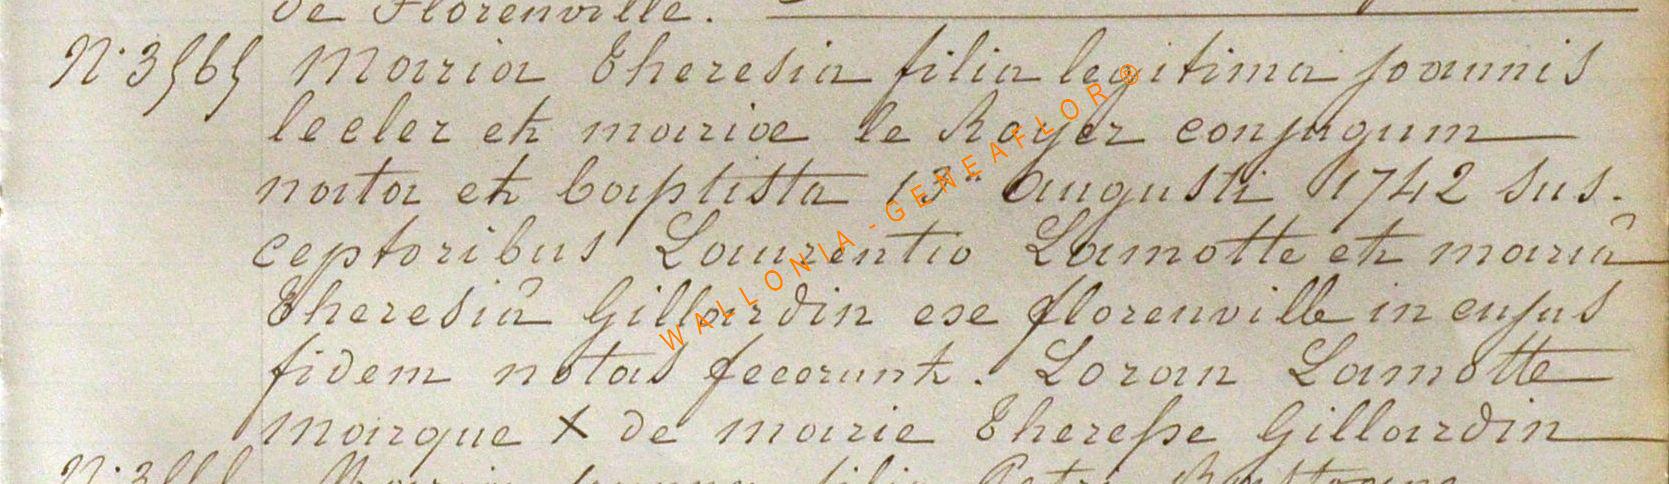 de Florenville.
N. 3565 Maria Theresia filia legitima joannis
lecler et mariae le Royer conjugum
nata et baptista 13a augusti 1742 sus-
ceptoribus Laurentio Lamotte et mariâ
Theresiâ Gillardin ex florenville in cujus
fidem notas fecerunt. Loran Lamotte
marque X de marie Therese Gillardin
WALLONIA - GENEAFLOR®